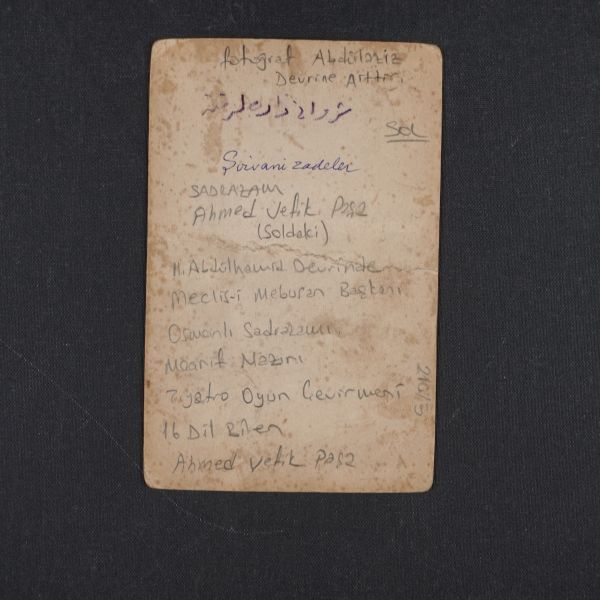 fotoğraf Abdülaziz
Devrine Aittir.
SOL
Şirvani zadeler
SADRAZAM
Ahmed Vefik Paşa
(Soldaki)
II. Abdülhamid Devrinde
Meclis-i Mebusan Başkanı
Osmanlı Sadrazamı
Maarif Nazırı
Tiyatro Oyun Çevirmeni
16 Dil Bilen
Ahmed Vefik Paşa